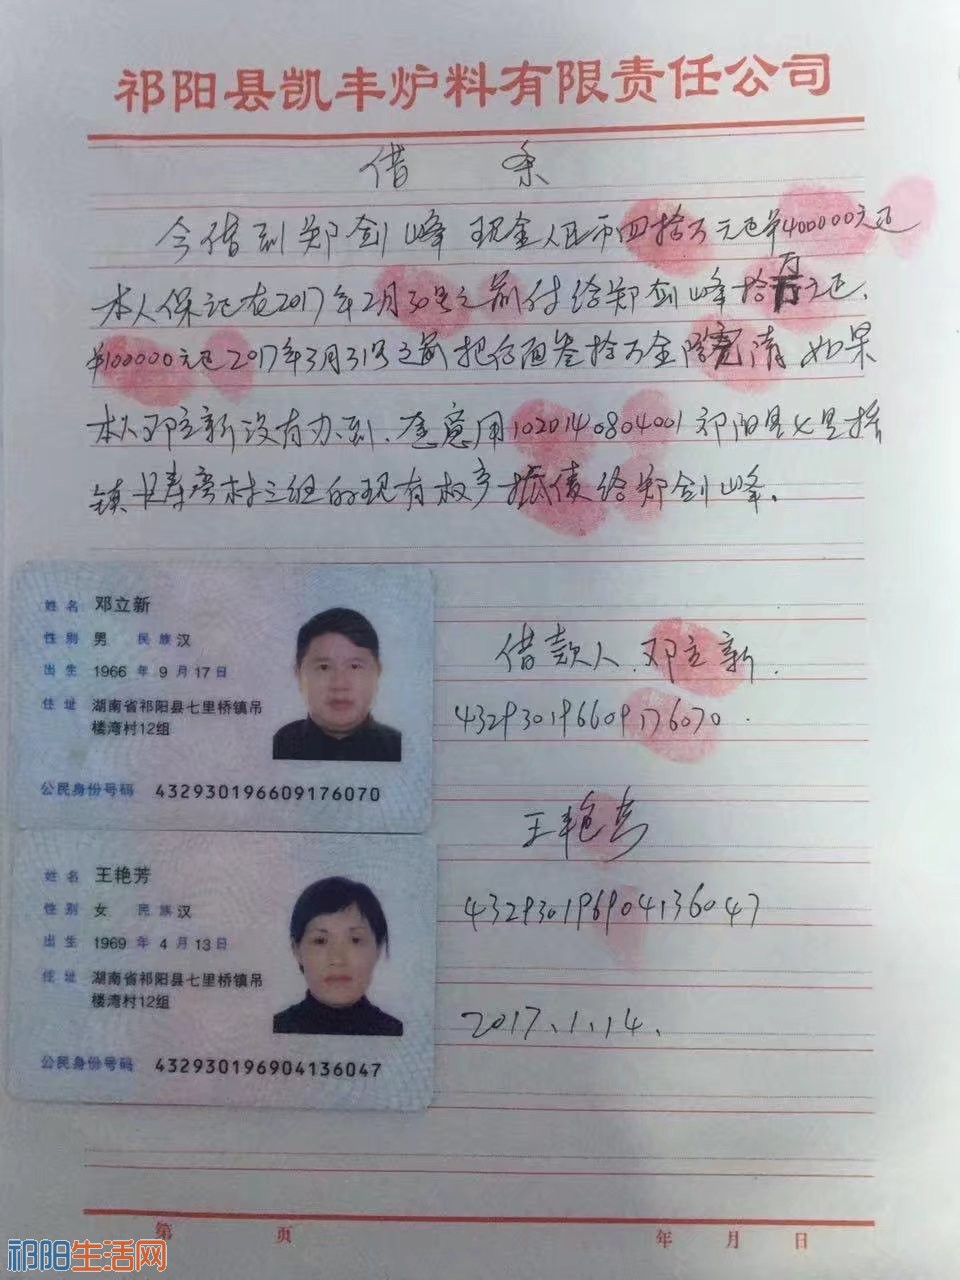 祁阳县凯丰炉料有限责任公司
借 条
今借到郑剑峰现金人民币四拾万元正¥400000元正
本人保证在2017年2月30号之前付给郑剑峰拾万元正、
¥100000元正2017年3月31号之前把余面叁拾万全部还清 如果
本人邓立新没有办到、愿意用1020140804001祁阳县七里桥
镇 村三组的现有权产抵债给郑剑峰。
姓名 邓立新
性别 男 民族 汉
出生 1966 年 9 月 17 日
住址 湖南省祁阳县七里桥镇吊
楼湾村12组
公民身份号码 432930196609176070
借款人、邓立新.
432930196609176070.
王艳芳
432930196904136047
2017、1、14、
姓名 王艳芳
性别 女 民族 汉
出生 1969 年 4 月 13 日
住址 湖南省祁阳县七里桥镇吊
楼湾村12组
公民身份号码 432930196904136047
第 页 年 月 日
祁阳生活网